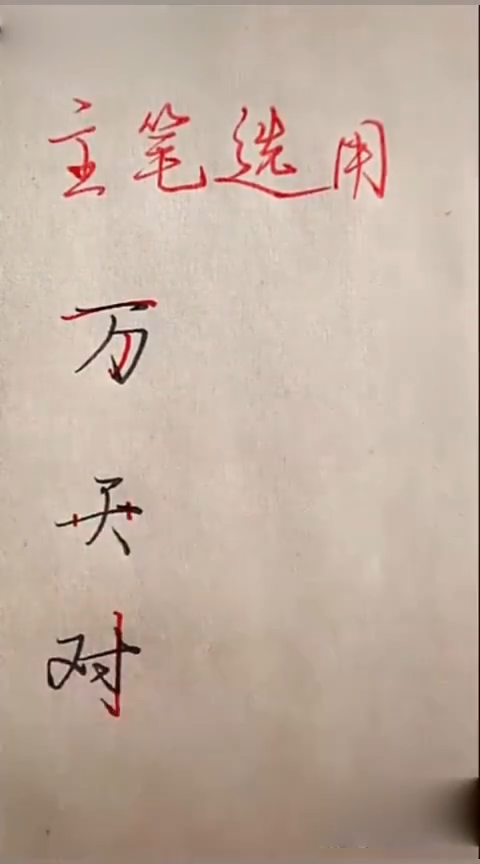 主笔选用
万
天
对